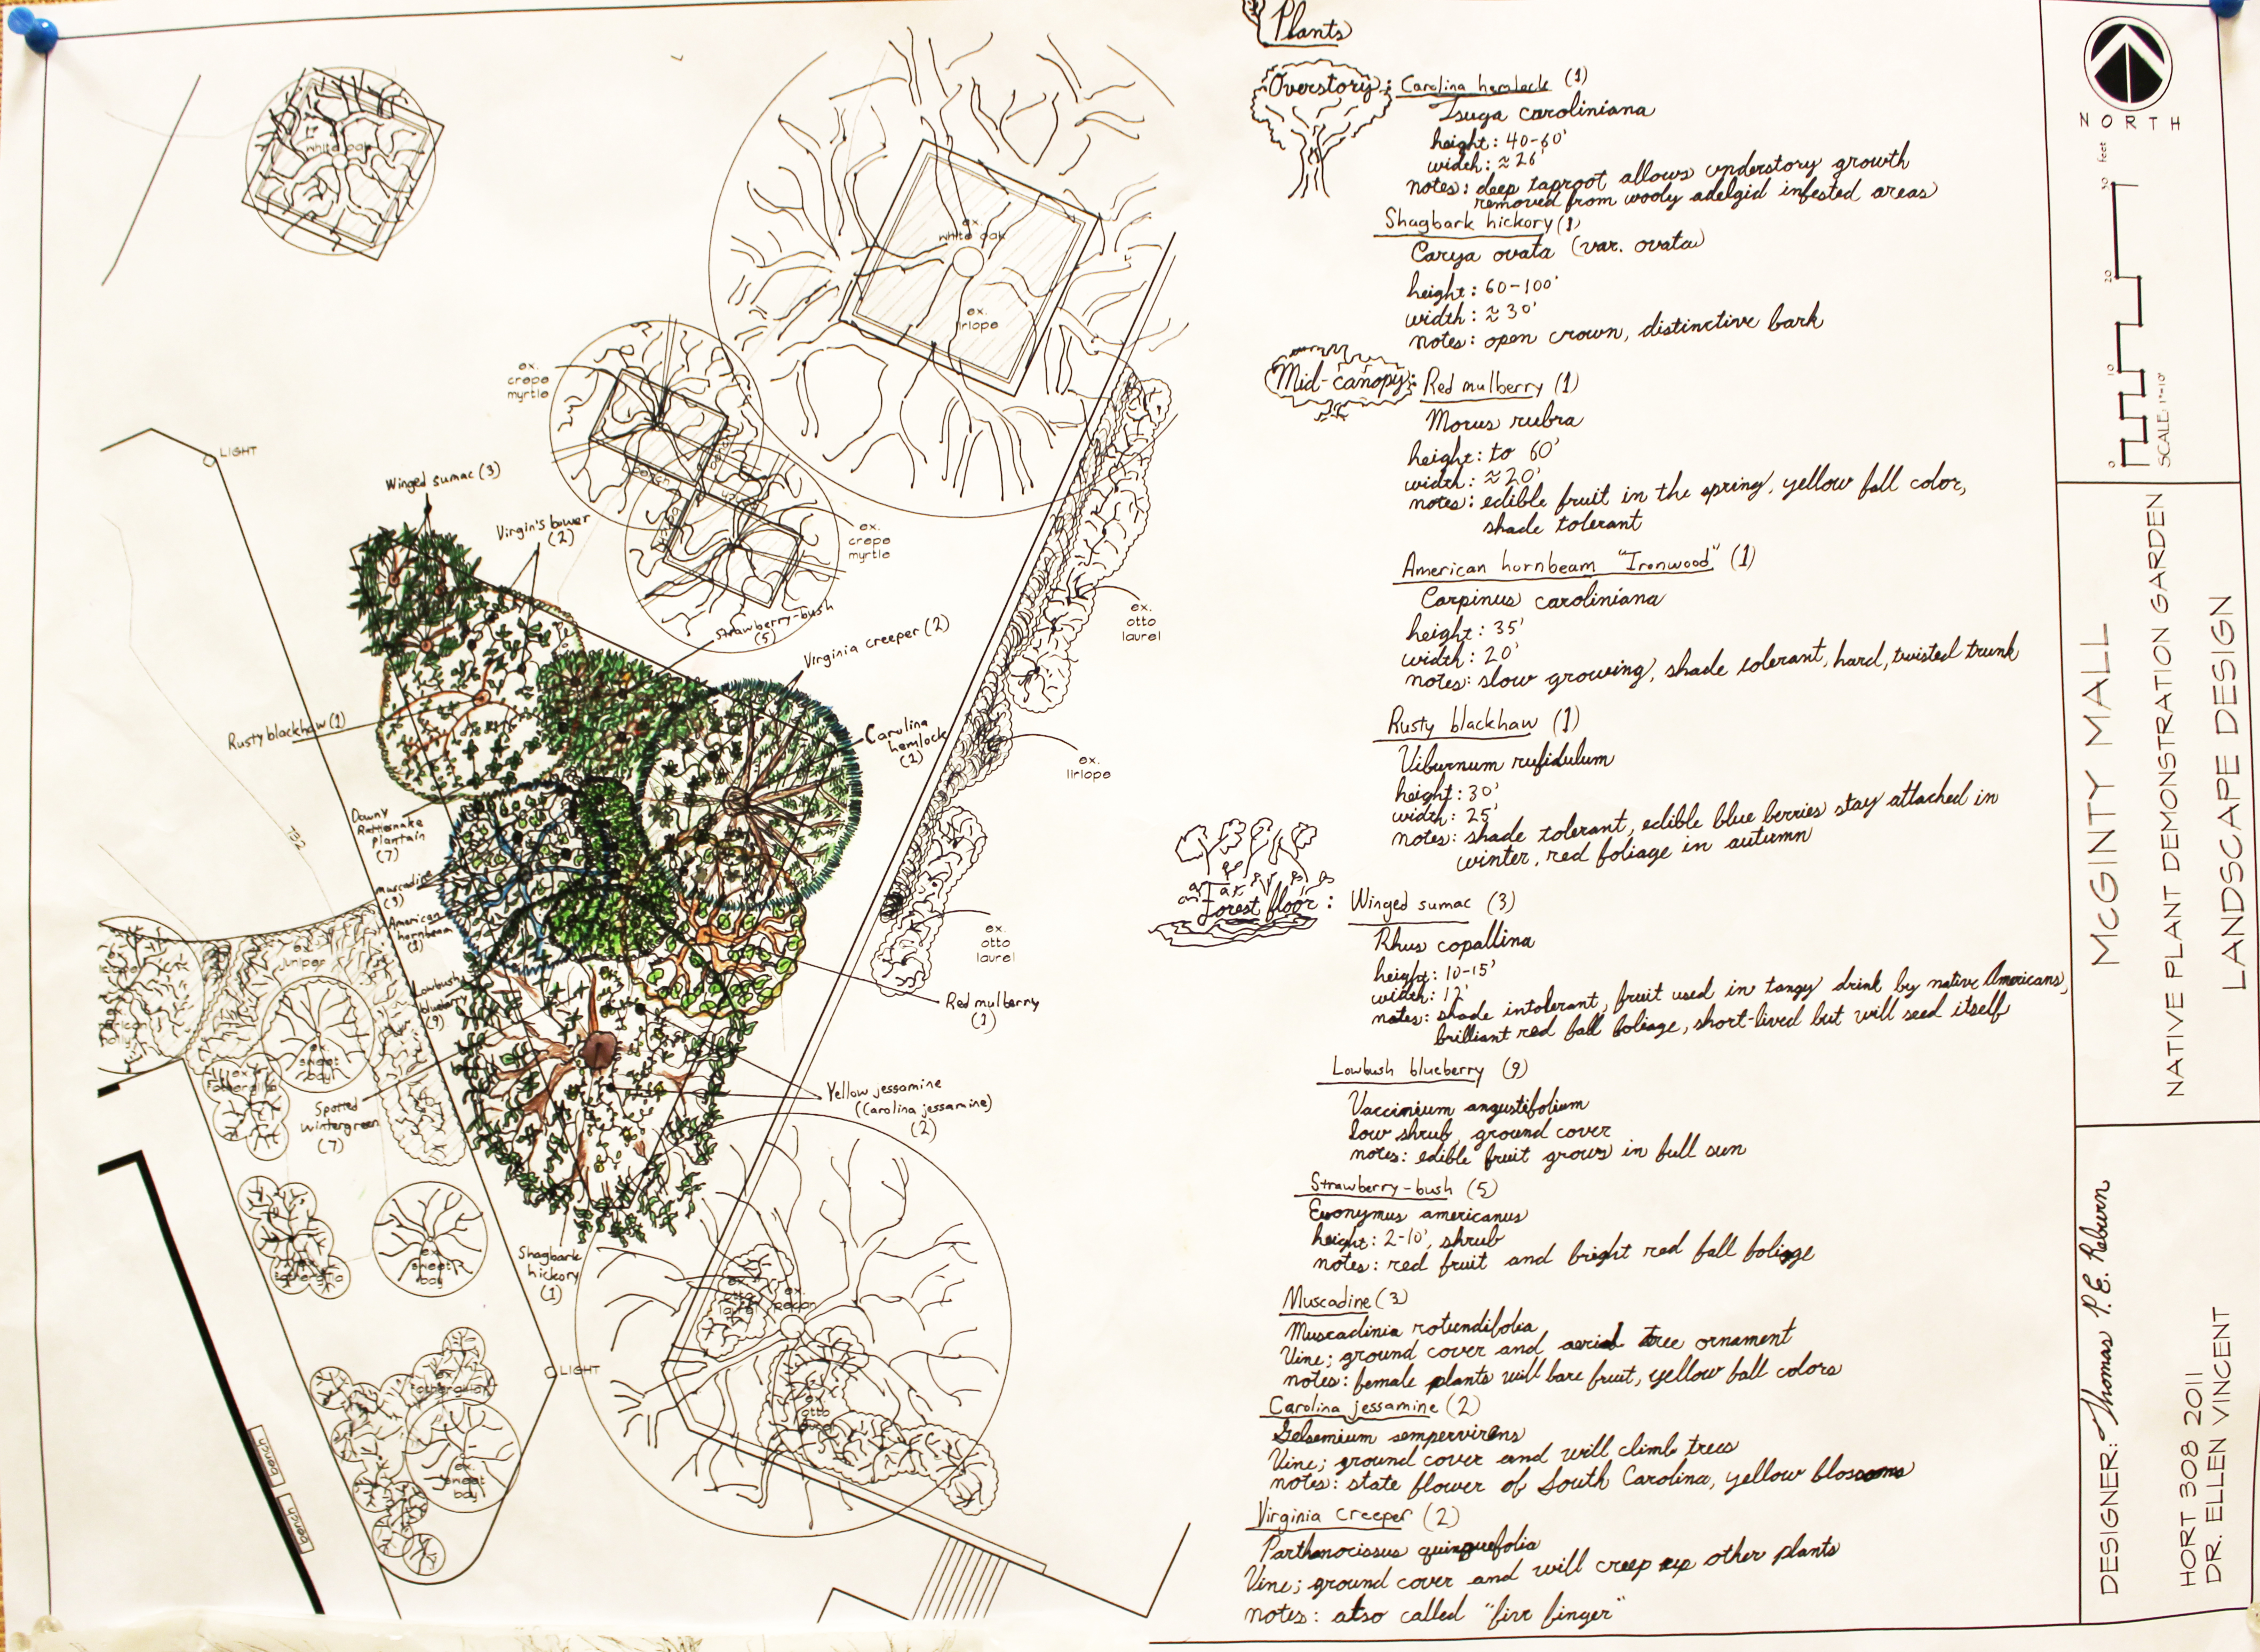 white oak
ex.
white oak
ex.
liriope
ex.
crepe
myrtle
LIGHT
Winged sumac (3)
Virgin's bower
(2)
bench
ex.
crepe
myrtle
Strawberry-bush
(5)
Virginia creeper (2)
ex.
otto
laurel
Rusty blackhaw (1)
Carolina
hemlock
(1)
ex.
liriope
Downy
Rattlesnake
plantain
(7)
732
muscadine
(3)
American
hornbeam
(1)
ex.
juniper
ex.
otto
laurel
Lowbush
blueberry
(9)
Red mulberry
(1)
ex.
sweet
bay
ex.
fothergilla
Spotted
Wintergreen
(7)
Yellow jessamine
(Carolina jessamine)
(2)
ex.
sweet
bay
fothergilla
Shagbark
hickory
(1)
ex.
otto
laurel
ex.
pecan
LIGHT
ex.
fothergilla
ex.
otto
laurel
ex.
sweet
bay
bench
bench
Plants
Overstory: Carolina hemlock (1)
Tsuga caroliniana
height: 40-60'
width: ≈ 26'
notes: deep taproot allows understory growth
removed from wooly adelgid infested areas
Shagbark hickory (1)
Carya ovata (var. ovata)
height: 60-100'
width: ≈ 30'
notes: open crown, distinctive bark
Mid-canopy: Red mulberry (1)
Morus rubra
height: to 60'
width: ≈ 20'
notes: edible fruit in the spring, yellow fall color,
shade tolerant
American hornbeam "Ironwood" (1)
Carpinus caroliniana
height: 35'
width: 20'
notes: slow growing, shade tolerant, hard, twisted trunk
Rusty blackhaw (1)
Viburnum rufidulum
height: 30'
width: 25'
notes: shade tolerant, edible blue berries stay attached in
winter, red foliage in autumn
Forest floor: Winged sumac (3)
Rhus copallina
height: 10-15'
width: 12'
notes: shade intolerant, fruit used in tangy drink by native Americans,
brilliant red fall foliage, short-lived but will seed itself
Lowbush blueberry (9)
Vaccinium angustifolium
low shrub, ground cover
notes: edible fruit grows in full sun
Strawberry-bush (5)
Euonymus americanus
height: 2-10', shrub
notes: red fruit and bright red fall foliage
Muscadine (3)
Muscadinia rotundifolia
Vine; ground cover and aerial tree ornament
notes: female plants will bare fruit, yellow fall colors
Carolina jessamine (2)
Gelsemium sempervirens
Vine; ground cover and will climb trees
notes: state flower of South Carolina, yellow blossoms
Virginia creeper (2)
Parthenocissus quinquefolia
Vine; ground cover and will creep up other plants
notes: also called "five finger"
NORTH
feet
20
10
0
SCALE: 1"=10'
McGINTY MALL
NATIVE PLANT DEMONSTRATION GARDEN
LANDSCAPE DESIGN
DESIGNER: Thomas P. E. Reburn
HORT 308 2011
DR. ELLEN VINCENT